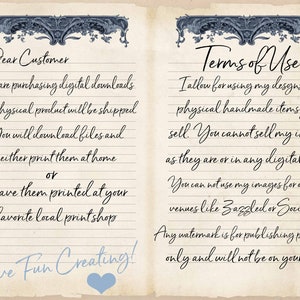 Dear Customer
are purchasing digital downloads
physical product will be shipped
You will download files and
either print them at home
or
have them printed at your
favorite local print shop
Have Fun Creating!
Terms of Use
I allow for using my designs
physical handmade items
sell. You cannot sell my i
as they are or in any digital
You can not use my images for
venues like Zazzled or Soci
Any watermark is for publishing p
only and will not be on your